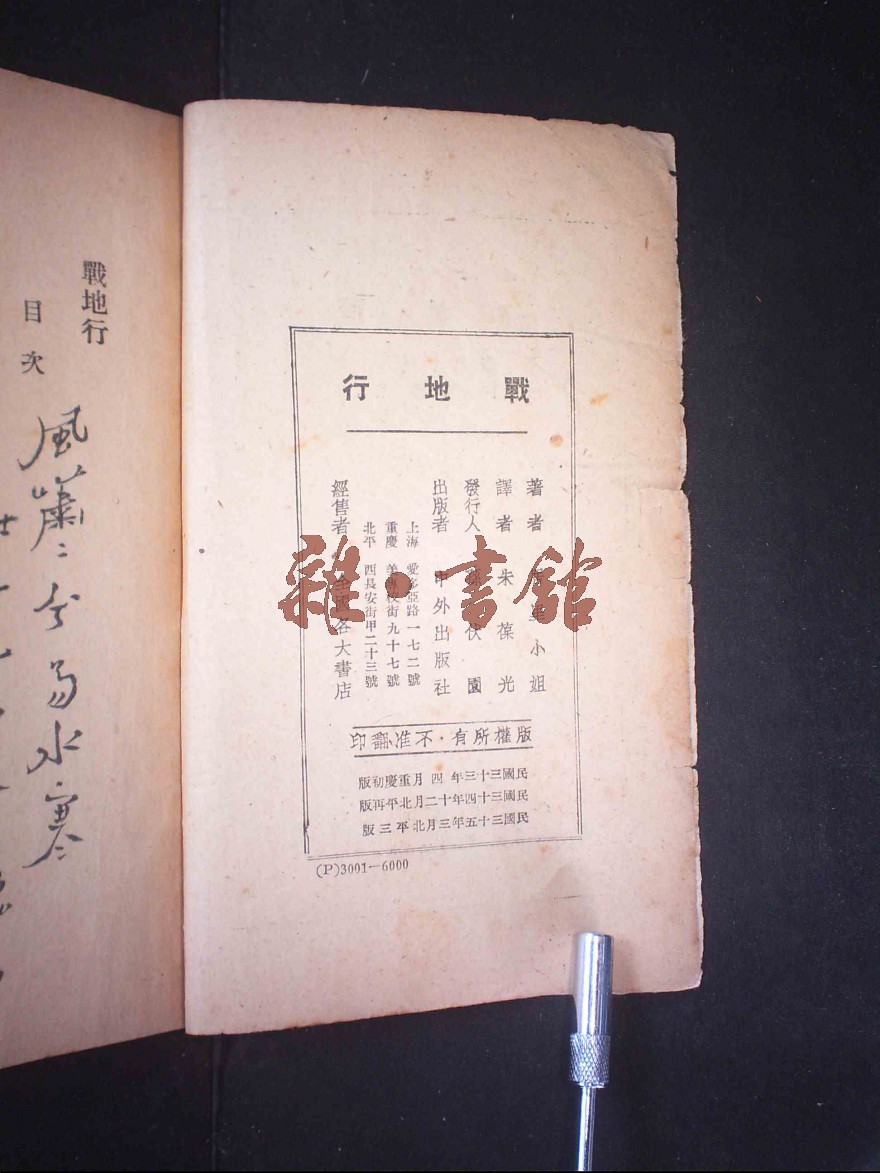 戰地行
著者 居里小姐
譯者 朱葆光
發行人 孫伏園
出版者 中外出版社
上海 愛多亞路一七二號
重慶 美專校街九十七號
北平 西長安街甲二十三號
經售者 全國各大書店
版權所有・不准翻印
民國三十三年四月重慶初版
民國三十四年十二月北平再版
民國三十五年三月北平三版
(P)3001—6000
戰地行
目次
風蕭〻兮易水寒
雜・書館